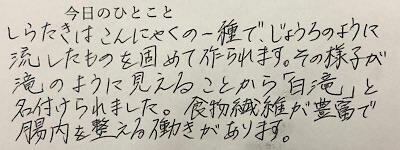 今日のひとこと
しらたきはこんにゃくの一種で、じょうろのように
流したものを固めて作られます。その様子が
滝のように見えることから「白滝」と
名付けられました。食物繊維が豊富で
腸内を整える働きがあります。